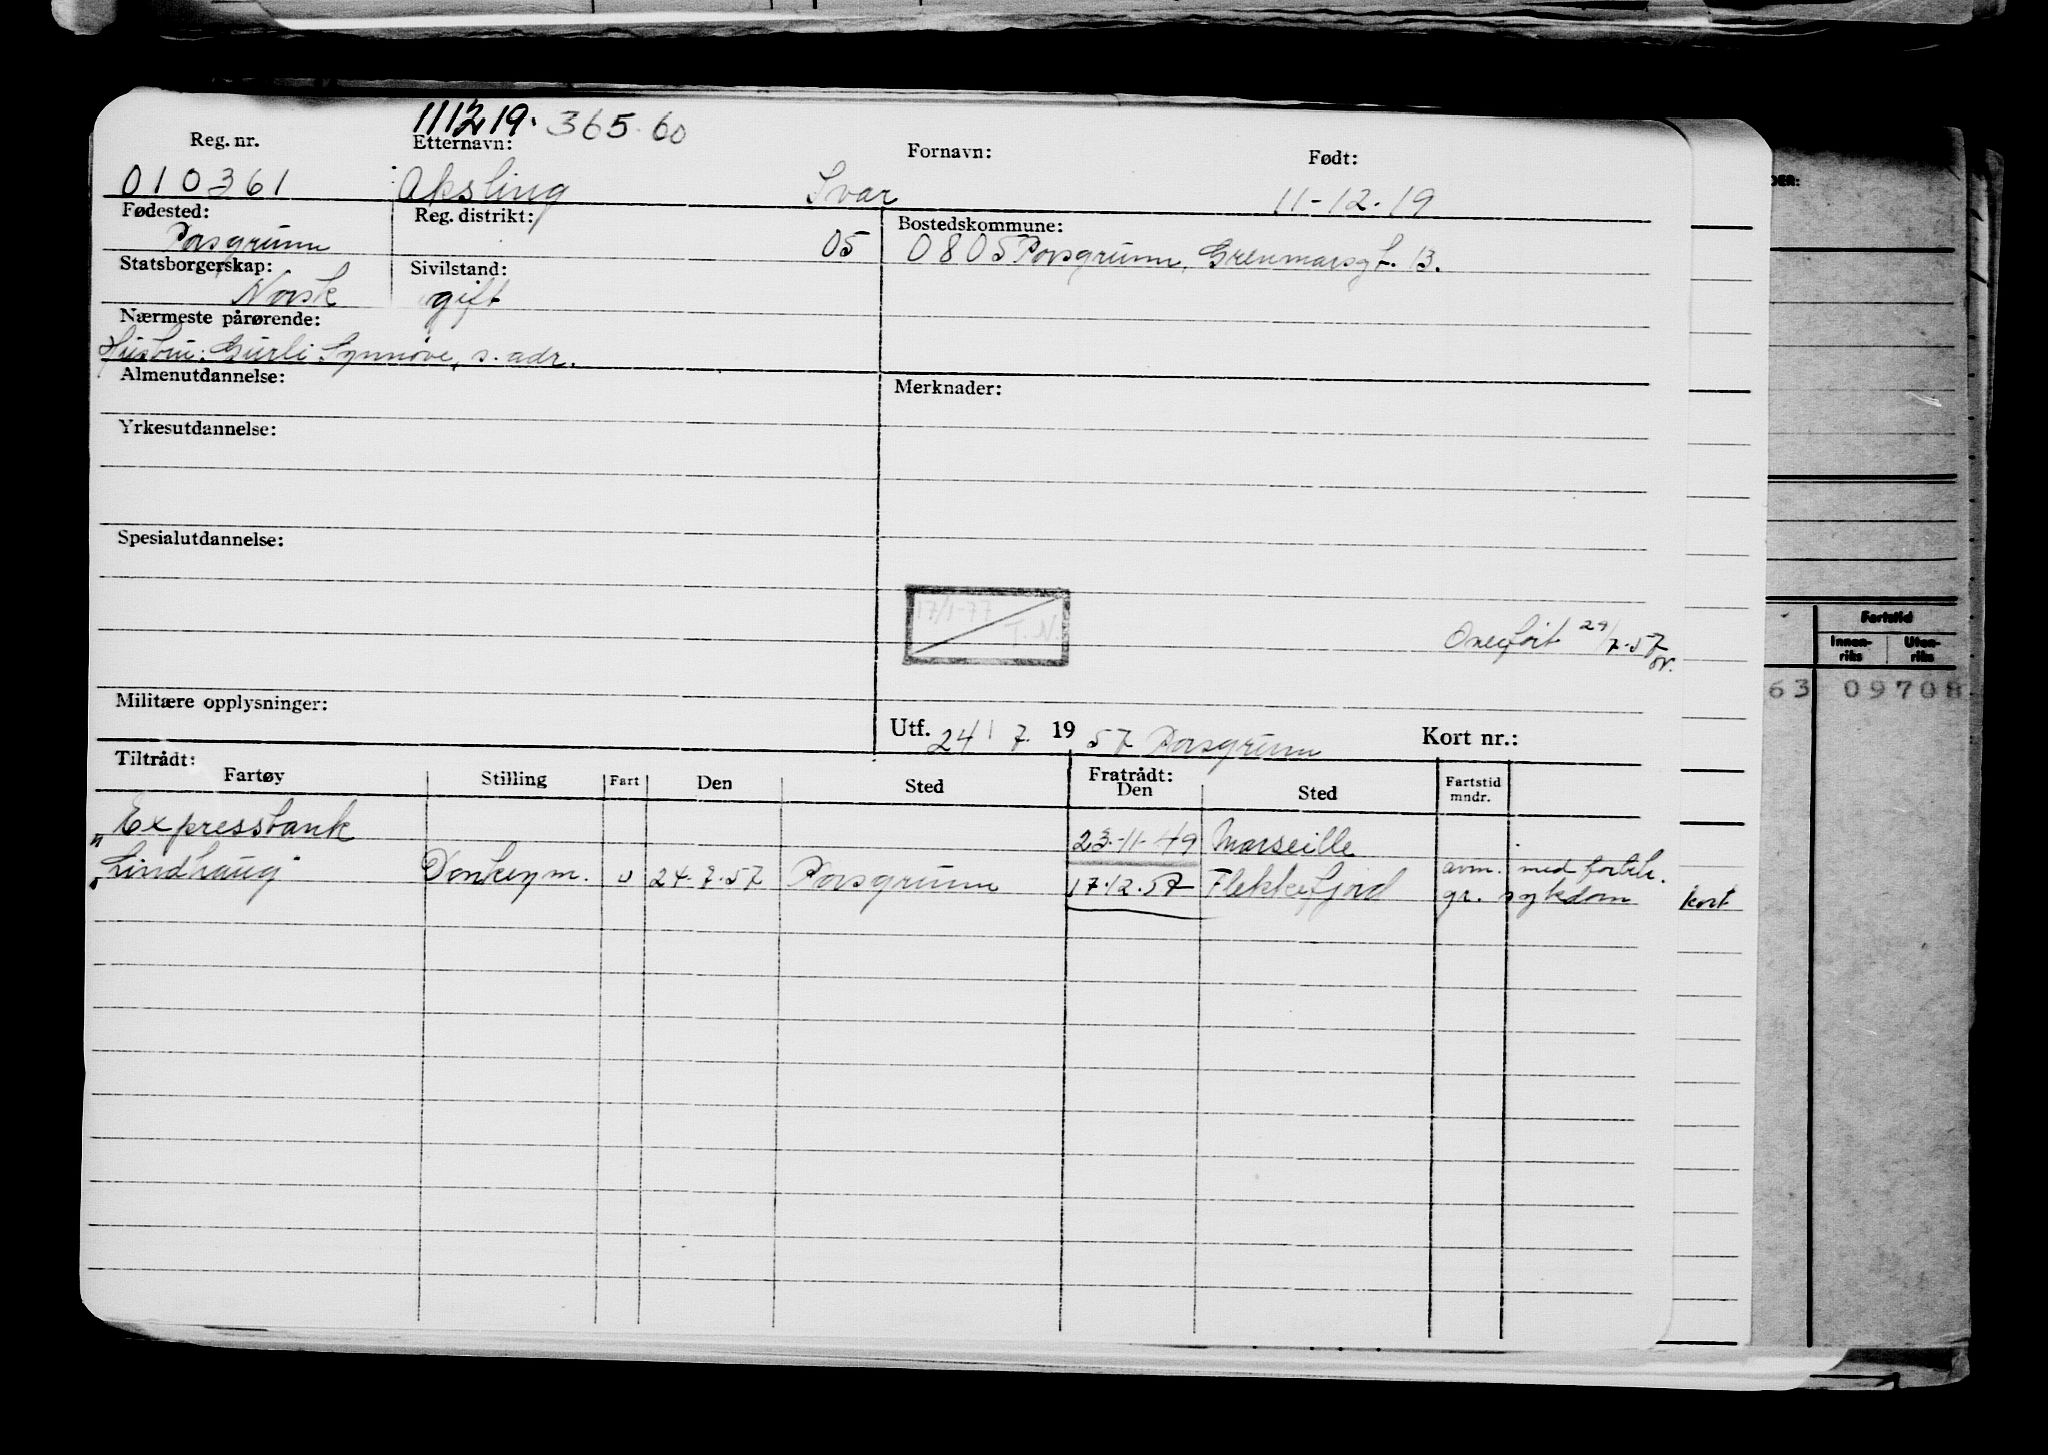 111219. 365.60
Reg. nr. Etternavn: Fornavn: Født:
010361 Aksling Ivar 11-12.19
Fødested: Reg. distrikt: Bostedskommune:
Porsgrunn 05 0805 Porsgrunn, Grenmarsgt. 13.
Statsborgerskap: Sivilstand:
Norsk gift
Nærmeste pårørende:
Hustru: Gurli Synnøve, s. adr.
Almenutdannelse: Merknader:
Yrkesutdannelse:
Spesialutdannelse:
17/1-77 T.N.
Overført 29/7.57
Militære opplysninger:
Utf. 24/7 1957 Porsgrunn Kort nr.:
Tiltrådt: Fratrådt:
Fartøy Stilling Fart Den Sted Den Sted Fartstid mndr.
"Expressbank 23.-11.-49 Marseille
"Lindhaug Donkeym. U 24.7.57 Porsgrunn 17.12.57 Flekkefjord avm. med
gr. sykdom
kort
DER:
Fartstid
Innen-riks Uten-riks
63 09708